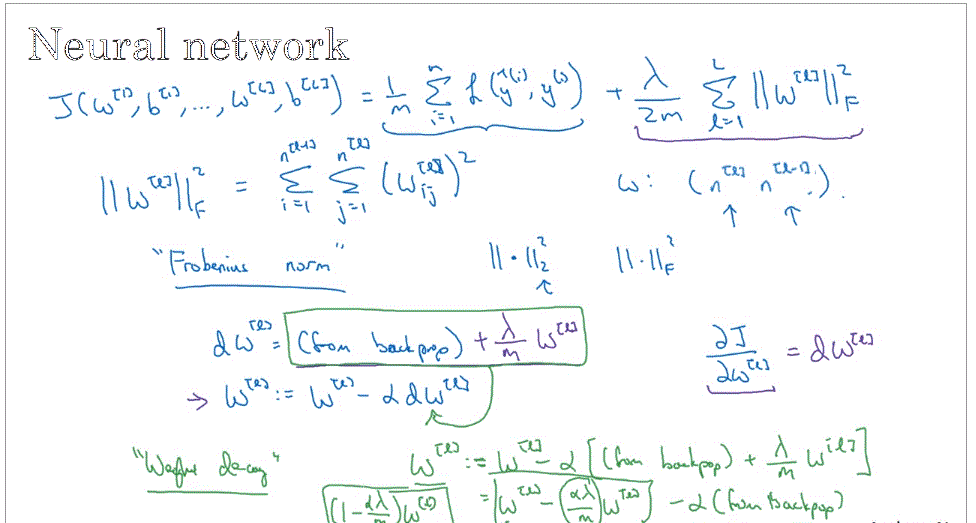 Neural network
J(w^[1], b^[1], ..., w^[L], b^[L]) = 1/m Σ_{i=1}^{m} ℒ(ŷ^(i), y^(i)) + λ/2m Σ_{l=1}^{L} ||w^[l]||_F^2
||w^[l]||_F^2 = Σ_{i=1}^{n^[l-1]} Σ_{j=1}^{n^[l]} (w_ij^[l])^2 w: (n^[l] n^[l-1]).
↑ ↑
"Frobenius norm" ||·||_2^2 ||·||_F^2
↑
dw^[l] = (from backprop) + λ/m w^[l] ∂J/∂w^[l] = dw^[l]
→ w^[l] := w^[l] - α dw^[l]
"Weight decay" w^[l] := w^[l] - α [(from backprop) + λ/m w^[l]]
(1 - αλ/m) w^[l] = w^[l] - (αλ/m) w^[l] - α (from backprop)